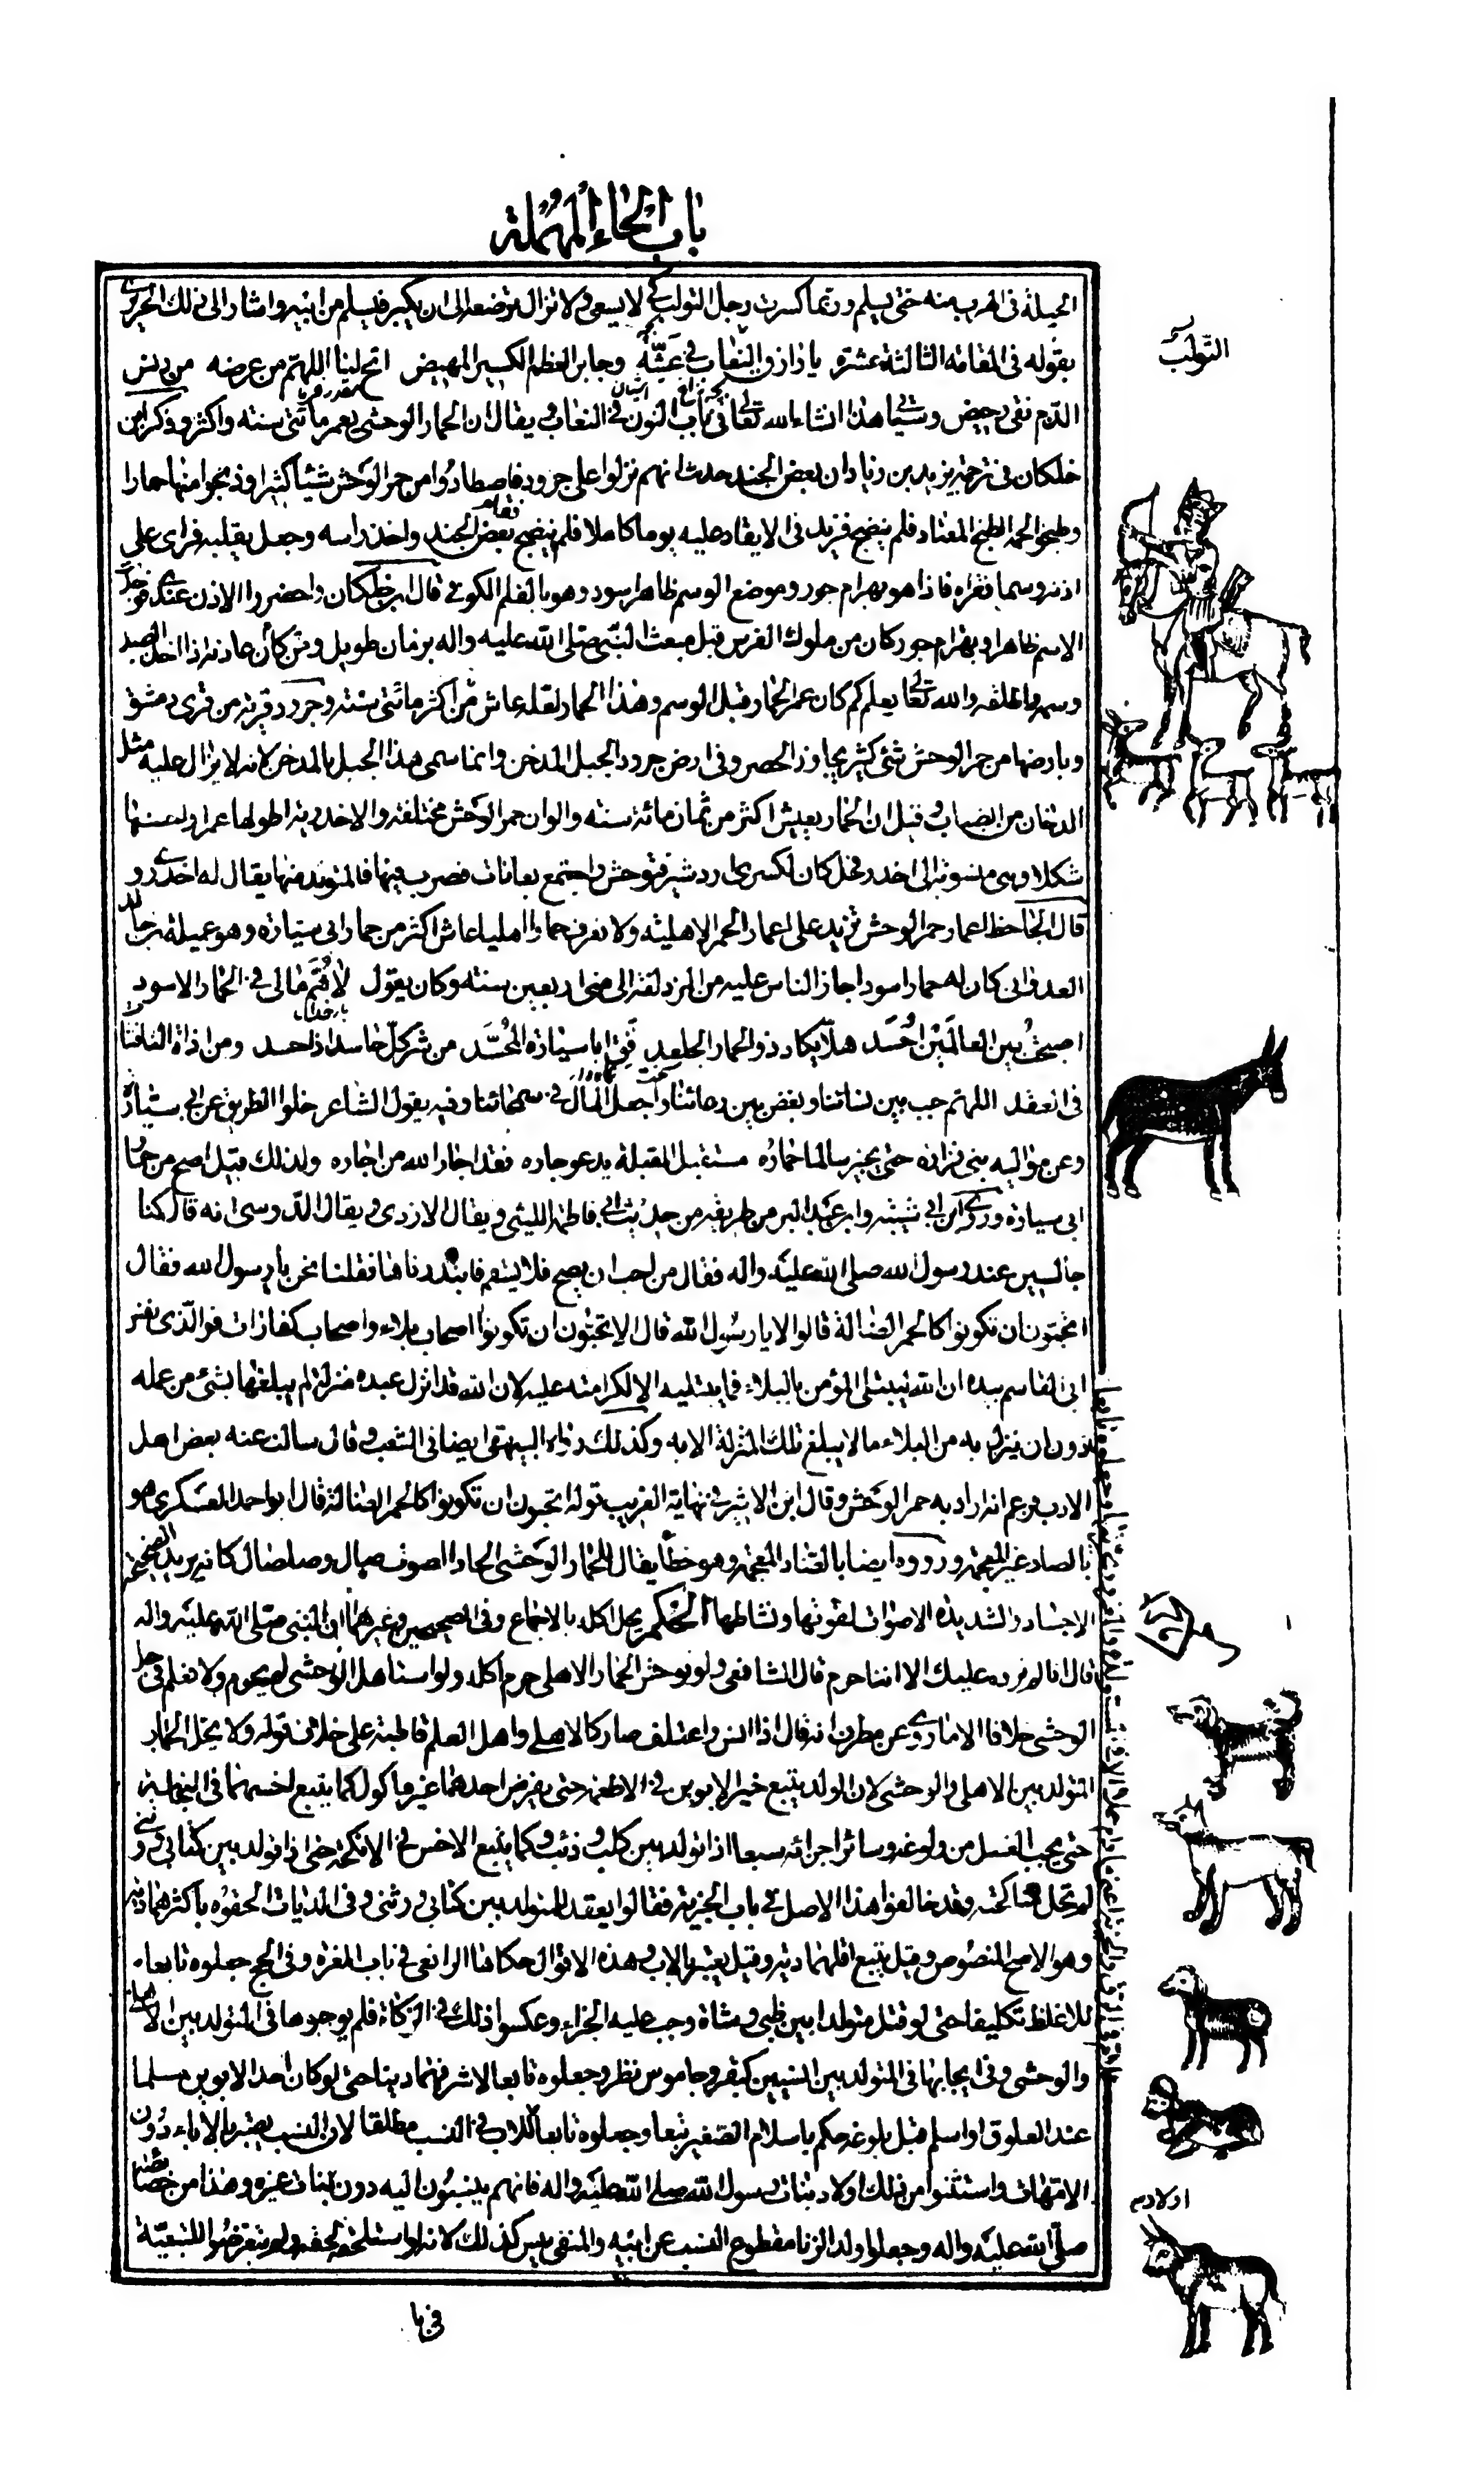 باب الحاء المهملة
الحيلة فى الهرب منه حتى يسلم وربما كسرت رجل التولب كى لا يسعى ولا تزال ترضعه الى ان يكبر فيسلم من ابيه واشار الى ذلك الحريرى
بقوله فى المقامة الثالثة عشرة يا رازق النعاب فى عشه وجابر العظم الكسير المهيض اتح لنا اللهم من عرضه من دنس
الذم نقى رحيض وسياتى هذا انشاء الله تعالى فى باب النون فى النعاب ويقال ان الحمار الوحشى يعمر مائتى سنة واكثر وذكر ابن
خلكان فى ترجمة يزيد بن زياد ان بعض الجند حدث انهم نزلوا على جرود فاصطادوا من حمر الوحش شيئا كثيرا وذبحوا منها حمارا
وطبخوا لحمه الطبخ المعتاد فلم ينضج فزيد فى الايقاد عليه يوما كاملا فلم ينضج فقام بعض الجند واخذ راسه وجعل يقلبه فراى على
اذنه وسما فقراه فاذا هو بهرام جور وموضع الوسم ظاهر اسود وهو بالقلم الكوفى قال ابن خلكان واحضروا الاذن عندى فوجدت
الاسم ظاهرا وبهرام جور كان من ملوك الفرس قبل مبعث النبى صلى الله عليه واله بزمان طويل وكان عادته اذا اخذ الصيد
وسمه واطلقه والله تعالى يعلم كم كان عمر الحمار قبل الوسم وهذا الحمار لعله عاش من اكثر مائتى سنة وجرود قرية من قرى دمشق
وبارضها من حمر الوحش شئ كثير يجاوز الحصر وفى ارض جرود الجبل المدخن وانما سمى هذا الجبل بالمدخن لانه لا يزال عليه مثل
الدخان من الضباب وقيل ان الحمار يعيش اكثر من ثمان مائة سنة والوان حمر الوحش مختلفة والاخدرية اطولها عمرا واحسنها
شكلا وهى منسوبة الى اخدر فحل كان لكسرى اردشير فتوحش واجتمع بعانات فضرب فيها فالمتولد منها يقال له اخدرى و
قال الجاحظ اعمار حمر الوحش تزيد على اعمار الحمر الاهلية ولا نعرف حمارا اهليا عاش اكثر من حمار ابى سيارة وهو عميلة بن خالد
العدوانى كان له حمار اسود اجاز الناس عليه من المزدلفة الى منى اربعين سنة وكان يقول لاهم مالى فى الحمار الاسود
اصبحت بين العالمين احسد هلا يكاد ذو الحمار الجلعد فق ابا سيارة المحسد من شر كل حاسد اذا حسد ومن اذاة النافثات
فى العقد اللهم حبب بين نسائنا وبغض بين رعائنا واجعل المال فى سمحائنا وفيه يقول الشاعر خلوا الطريق عن ابى سيارة
وعن مواليه بنى فزاره حتى يجيز سالما حماره مستقبل القبلة يدعو جاره فقد اجار الله من اجاره ولذلك قيل اصح من حمار
ابى سيارة وروى ابن ابى شيبة وابن عبد البر من طريقه من حديث ابى فاطمة الليثى ويقال الازدى ويقال الدوسى انه قال كنا
جالسين عند رسول الله صلى الله عليه واله فقال من احب ان يصح فلا يسقم فابتدرناها فقلنا نحن يا رسول الله فقال
اتحبون ان تكونوا كالحمر الضالة قالوا لا يا رسول الله قال الا تحبون ان تكونوا اصحاب بلاء واصحاب كفارات فوالذى نفس
ابى القاسم بيده ان الله ليبتلى المؤمن بالبلاء فما يبتليه الا لكرامته عليه لان الله قد انزل عبده منزلة لم يبلغها بشئ من عمله
دون ان ينزل به من البلاء ما لا يبلغ تلك المنزلة الا به وكذلك رواه البيهقى ايضا فى الشعب وقال سالت عنه بعض اهل
الادب فزعم انه اراد به حمر الوحش وقال ابن الاثير فى نهاية الغريب قوله اتحبون ان تكونوا كالحمر الضالة قال ابو احمد العسكرى هو
بالصاد غير المعجمة ورووه ايضا بالضاد المعجمة وهو خطأ يقال للحمار الوحشى الحاد الصوت صال وصلصال كانه يريد الصحيحة
الاجساد والشديدة الاصوات لقوتها ونشاطها الحكم يحل اكله بالاجماع وفى الصحيحين وغيرهما ان النبى صلى الله عليه واله
قال انا لم نرده عليك الا اننا حرم قال الشافعى ولو توحش الحمار الاهلى حرم اكله ولو استاهل الوحشى لم يحرم ولا نعلم فى حل
الوحشى خلافا الا ما روى عن مطرف انه قال اذا انس واعتلف صار كالاهلى واهل العلم قاطبة على خلاف قوله ولا يحل الحمار
المتولد بين الاهلى والوحشى لان الولد يتبع خير الابوين فى الاطعمة حتى يفرض احدهما غير ماكول كما يتبع اخسهما فى النجاسة
حتى يجب الغسل من ولوغه وسائر اجزائه سبعا اذا تولد بين كلب وذئب وكما يتبع الاخس فى الانكحة حتى اذا تولد بين كتابى ووثنى
لم تحل مناكحته وقد خالفوا هذا الاصل فى باب الجزية فقالوا يعقد للمتولد بين كتابى ووثنى وفى الديات الحقوه باكثرهما دية
وهو الاصح المنصوص وقيل يتبع اقلهما دية وقيل يعتبر بالاب وهذه الاقوال حكاها الرافعى فى باب الغرة وفى الحج جعلوه تابعا
للاغلظ تكليفا حتى لو قتل متولدا بين ظبى وشاة وجب عليه الجزاء وعكسوا ذلك فى الزكاة فلم يوجبوها فى المتولد بين الاهلى
والوحشى وفى ايجابها فى المتولد بين انسيين كبقر وجاموس نظر وجعلوه تابعا لاشرفهما دينا حتى لو كان احد الابوين مسلما
عند العلوق او اسلم قبل بلوغه حكم باسلام الصغير تبعا وجعلوه تابعا للاب فى النسب مطلقا لان النسب يعتبر بالاباء دون
الامهات واستثنوا من ذلك اولاد بنات رسول الله صلى الله عليه واله فانهم ينسبون اليه دون بنات غيره وهذا من خصائصه
صلى الله عليه واله وجعلوا ولد الزنا مقطوع النسب عن ابيه والمنفى ليس كذلك لانه لو استلحقه لحقه ولم يتعرضوا للتبعية
فى با
التولب
اولادم